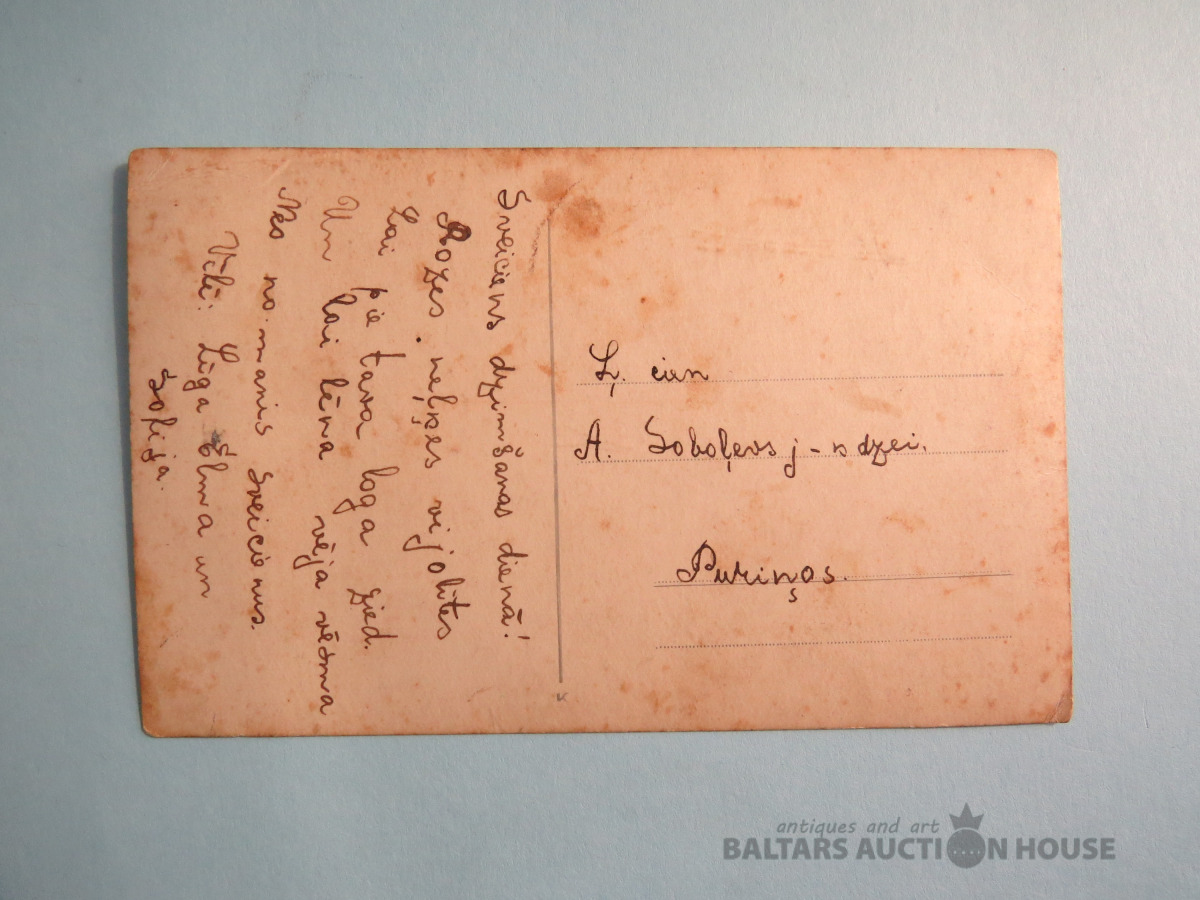 Sveiciens dzimšanas dienā!
Rozes neļķes vijolītes
Lai pie tava loga zied.
Un lai lēna vēja vēsma
Nes no manis sveicienus.
Vēlē: Līga Elma un
Sofija.
Ļ. cien
A. Soboļevs j-ndzei.
Puriņos.
antiques and art
BALTARS AUCTION HOUSE